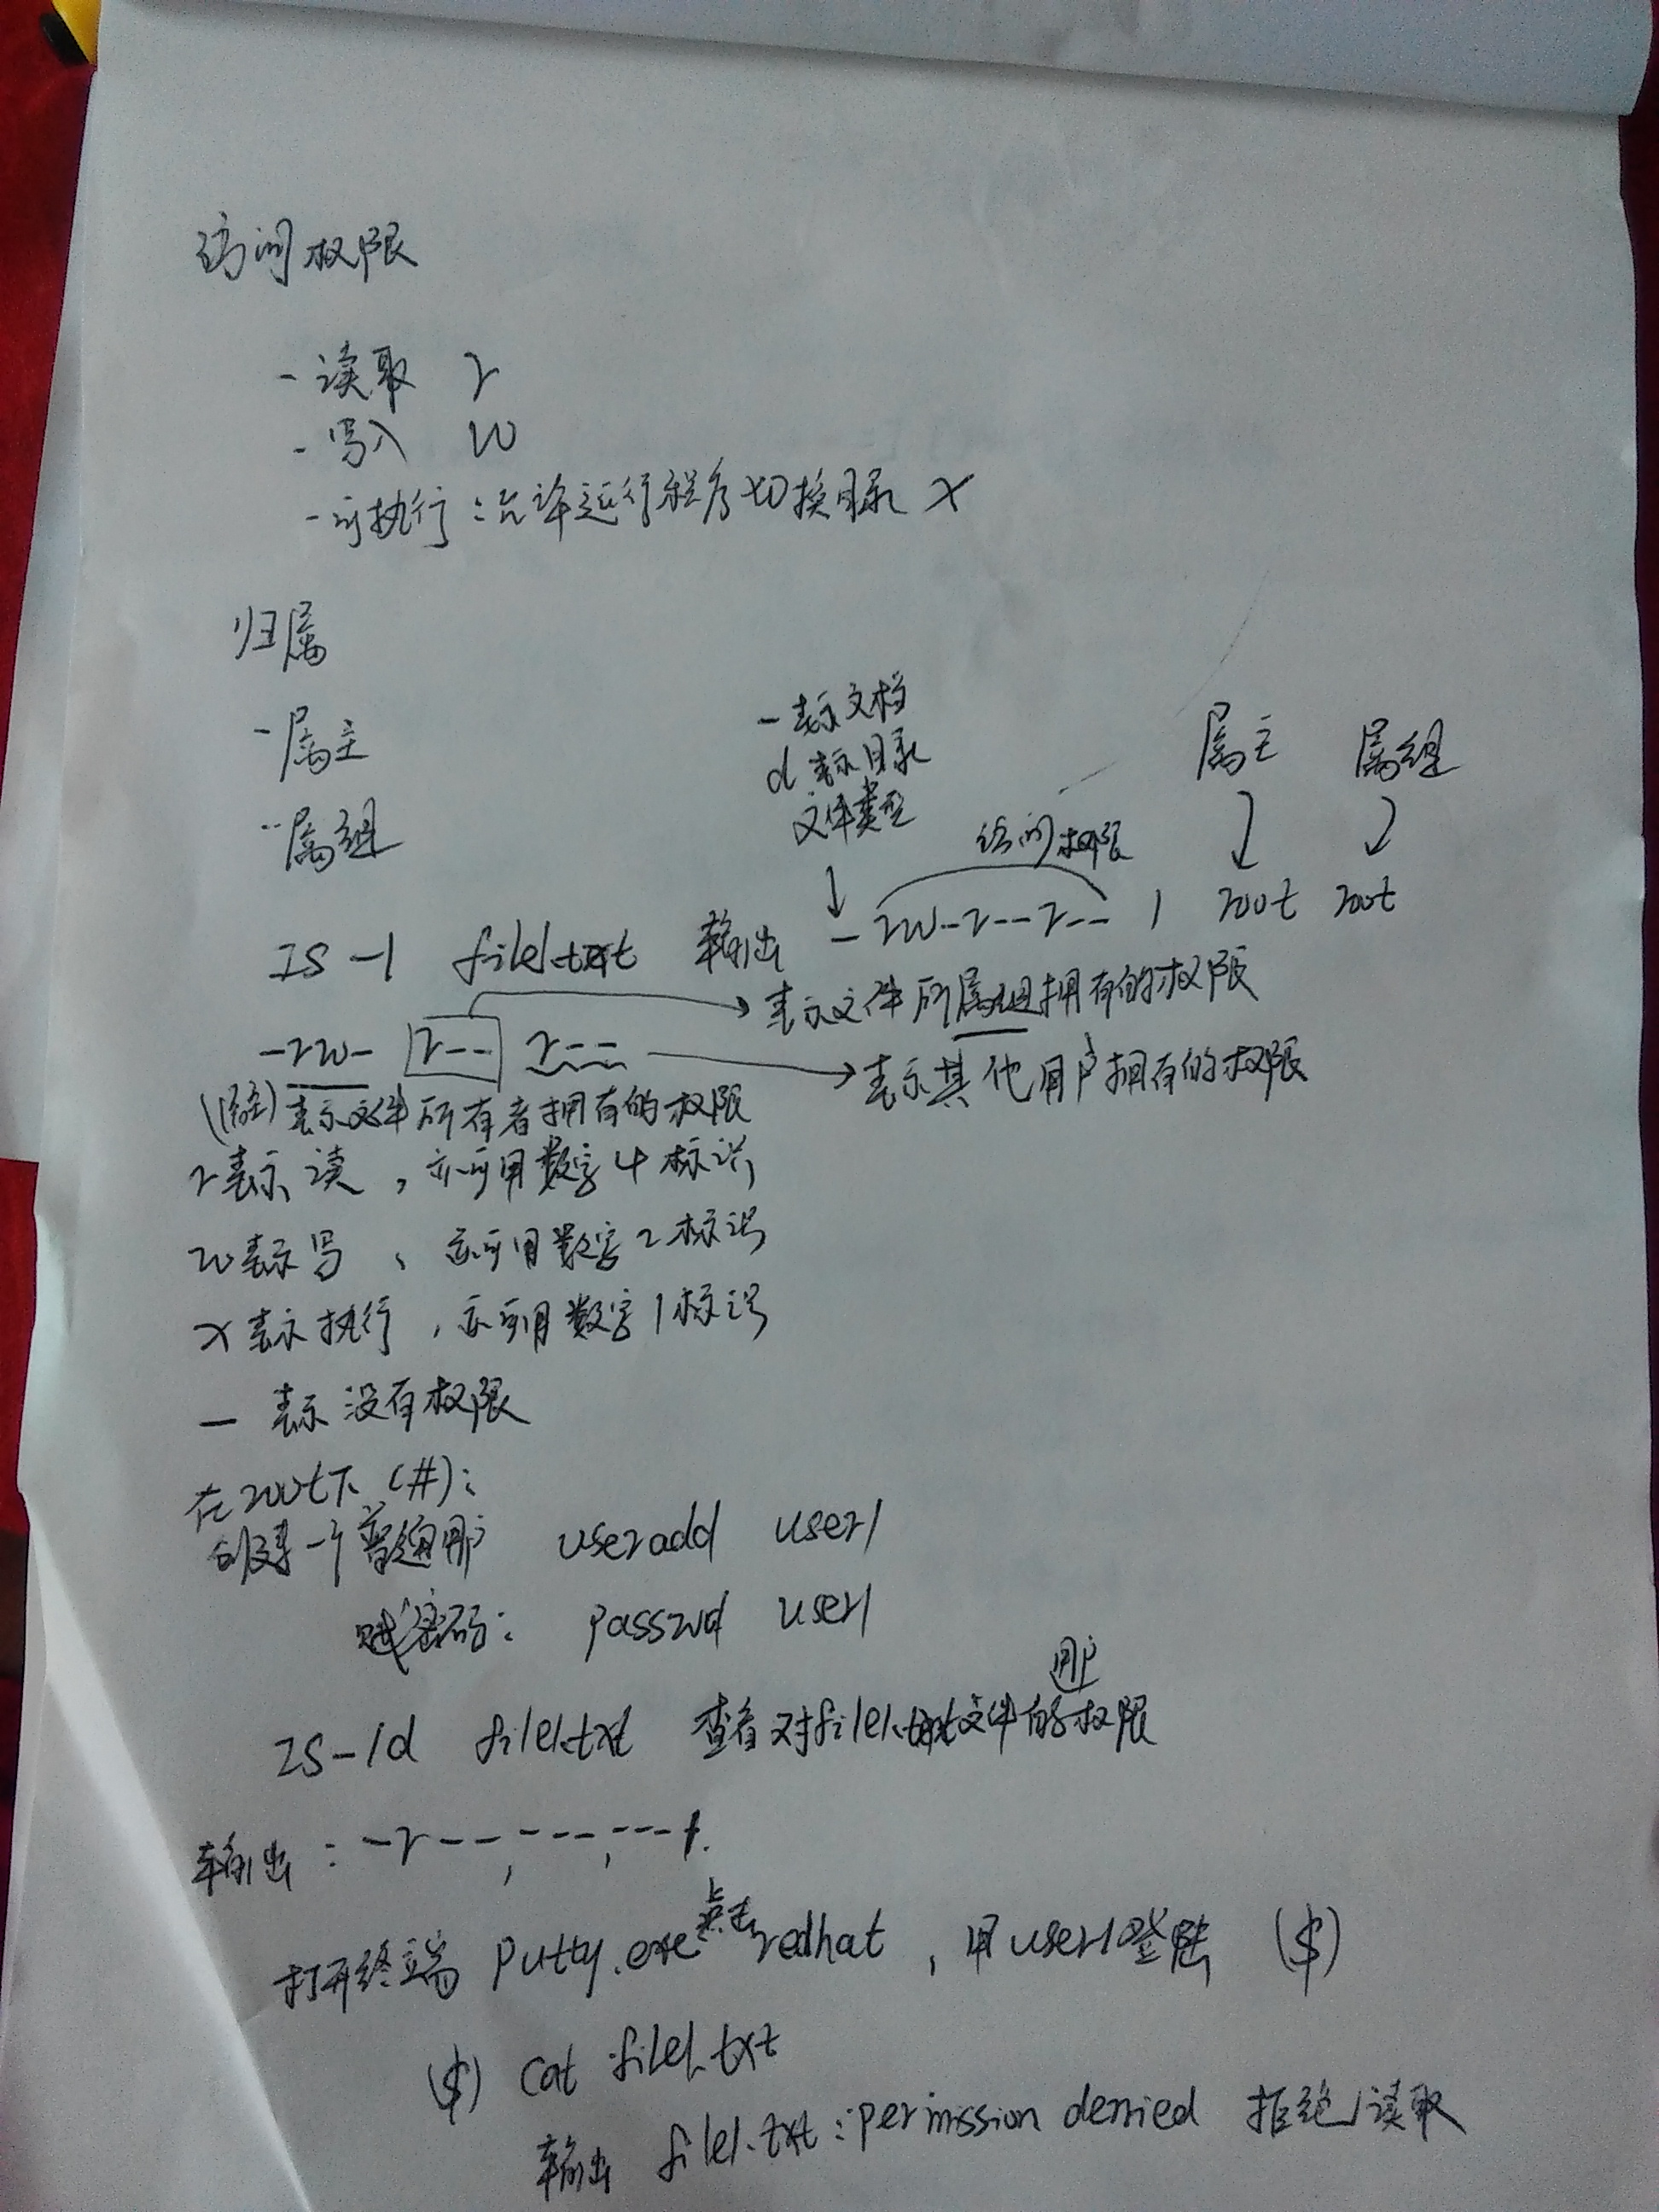 访问权限
-读取 r
-写入 w
-可执行:允许运行程序切换目录 x
归属
-属主
-属组
-表示文档
d 表示目录
文件类型
访问权限
属主 属组
ls -l file1.txt 输出 -rw-r--r-- 1 root root
-rw- r-- r--
表示文件所属组拥有的权限
表示其他用户拥有的权限
(属主)表示文件所有者拥有的权限
r表示读,亦可用数字4标识
w表示写、亦可用数字2标识
x表示执行,亦可用数字1标识
— 表示没有权限
在root下(#):
创建一个普通用户 useradd user1
赋密码: passwd user1
ls -ld file1.txt 查看用户对file1.txt文件的权限
输出:-r--,---,---1.
打开终端 Putty.exe点击redhat,用user1登陆 ($)
($) cat file1.txt
输出 file1.txt:permission denied 拒绝读取